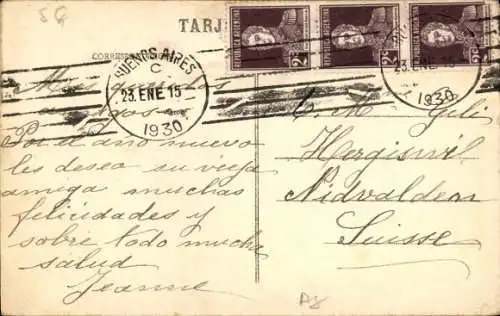 5Q
TARJ
CORRES
BUENOS AIRES
C
23. ENE 15
1930
REPUBLICA ARGENTINA
2
2
2
23. ENE 15
1930
Por el año nuevo
les deseo su vieja
amiga muchas
felicidades y
sobre todo mucha
salud
Jeanne
Hergiswil
Nidwalden
Suisse